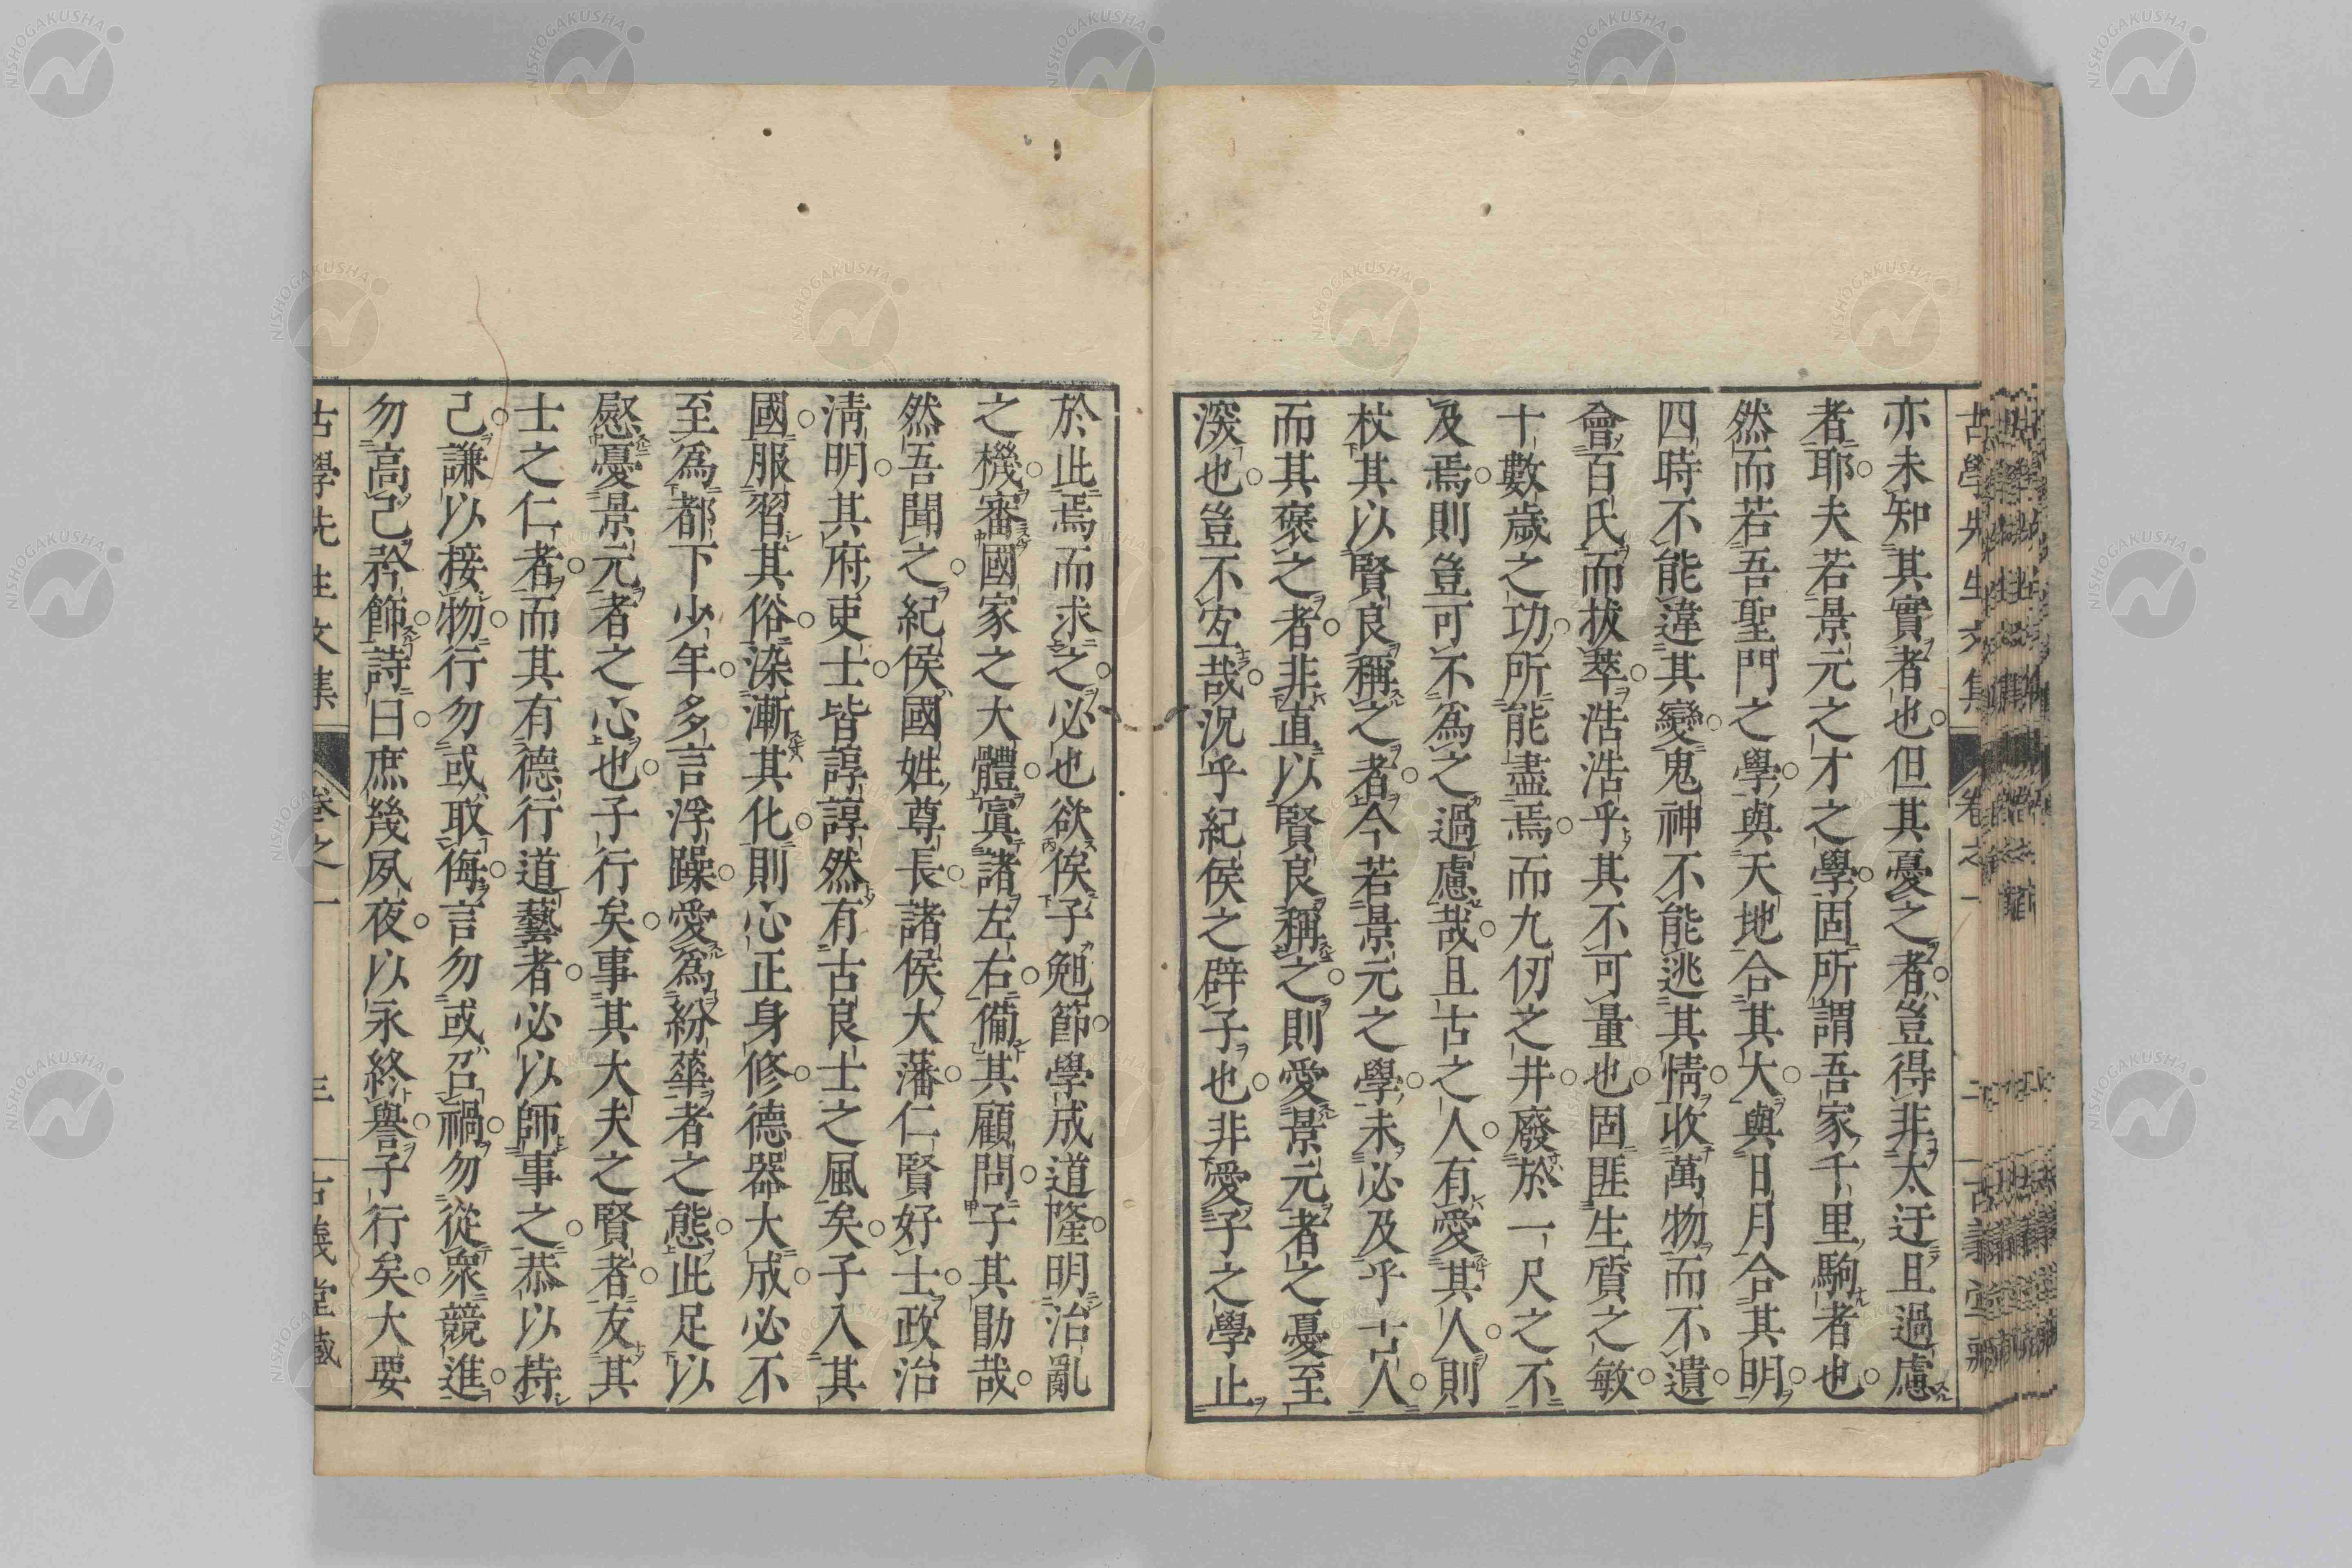 亦未知其實者也但其憂之者豈得非太迂且過慮
者耶夫若景元之才之學固所謂吾家千里駒者也
然而若吾聖門之學與天地合其大與日月合其明
四時不能違其變鬼神不能逃其情收萬物而不遺
會百氏而拔萃浩浩乎其不可量也固匪生質之敏
十數歲之功所能盡焉而九仞之井廢於一尺之不
及焉則豈可不爲之過慮哉且古之人有愛其人則
杖其以賢良稱之者今若景元之學未必及乎古人
而其褒之者非直以賢良稱之則愛景元者之憂至
深也豈不宜哉況乎紀侯之辟子也非愛子之學止
古學先生文集 卷之一 二 古義堂藏
於此焉而求之必也欲俟子勉節學成道隆明治亂
之機審國家之大體寘諸左右備其顧問子其勖哉
然吾聞之紀侯國姓尊長諸侯大藩仁賢好士政治
清明其府吏士皆諄諄然有古良士之風矣子入其
國服習其俗染漸其化則心正身修德器大成必不
至爲都下少年多言浮躁愛爲紛華者之態此足以
慰憂景元者之心也子行矣事其大夫之賢者友其
士之仁者而其有德行道藝者必以師事之恭以持
己謙以接物行勿或取侮言勿或召禍勿從衆競進
勿高己矜飾詩曰庶幾夙夜以永終譽子行矣大要
古學先生文集 卷之一 三 古義堂藏
NISHOGAKUSHA